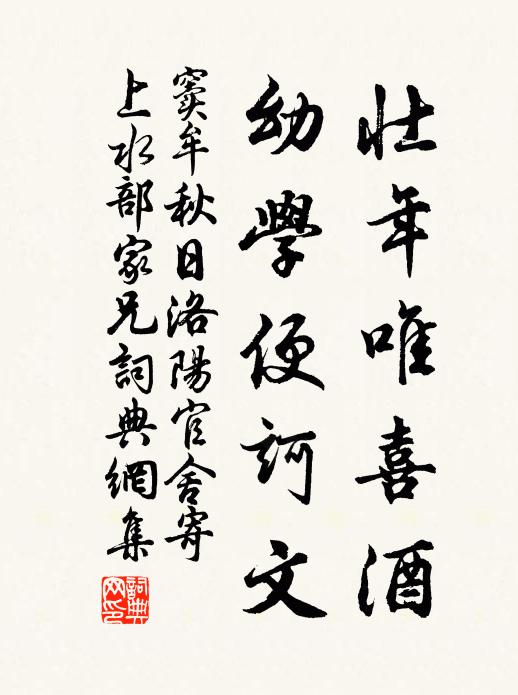 壯年唯喜酒
幼學便訶文
竇牟秋日洛陽官舍寄
上水部家兄詞典網集
詞典
网印